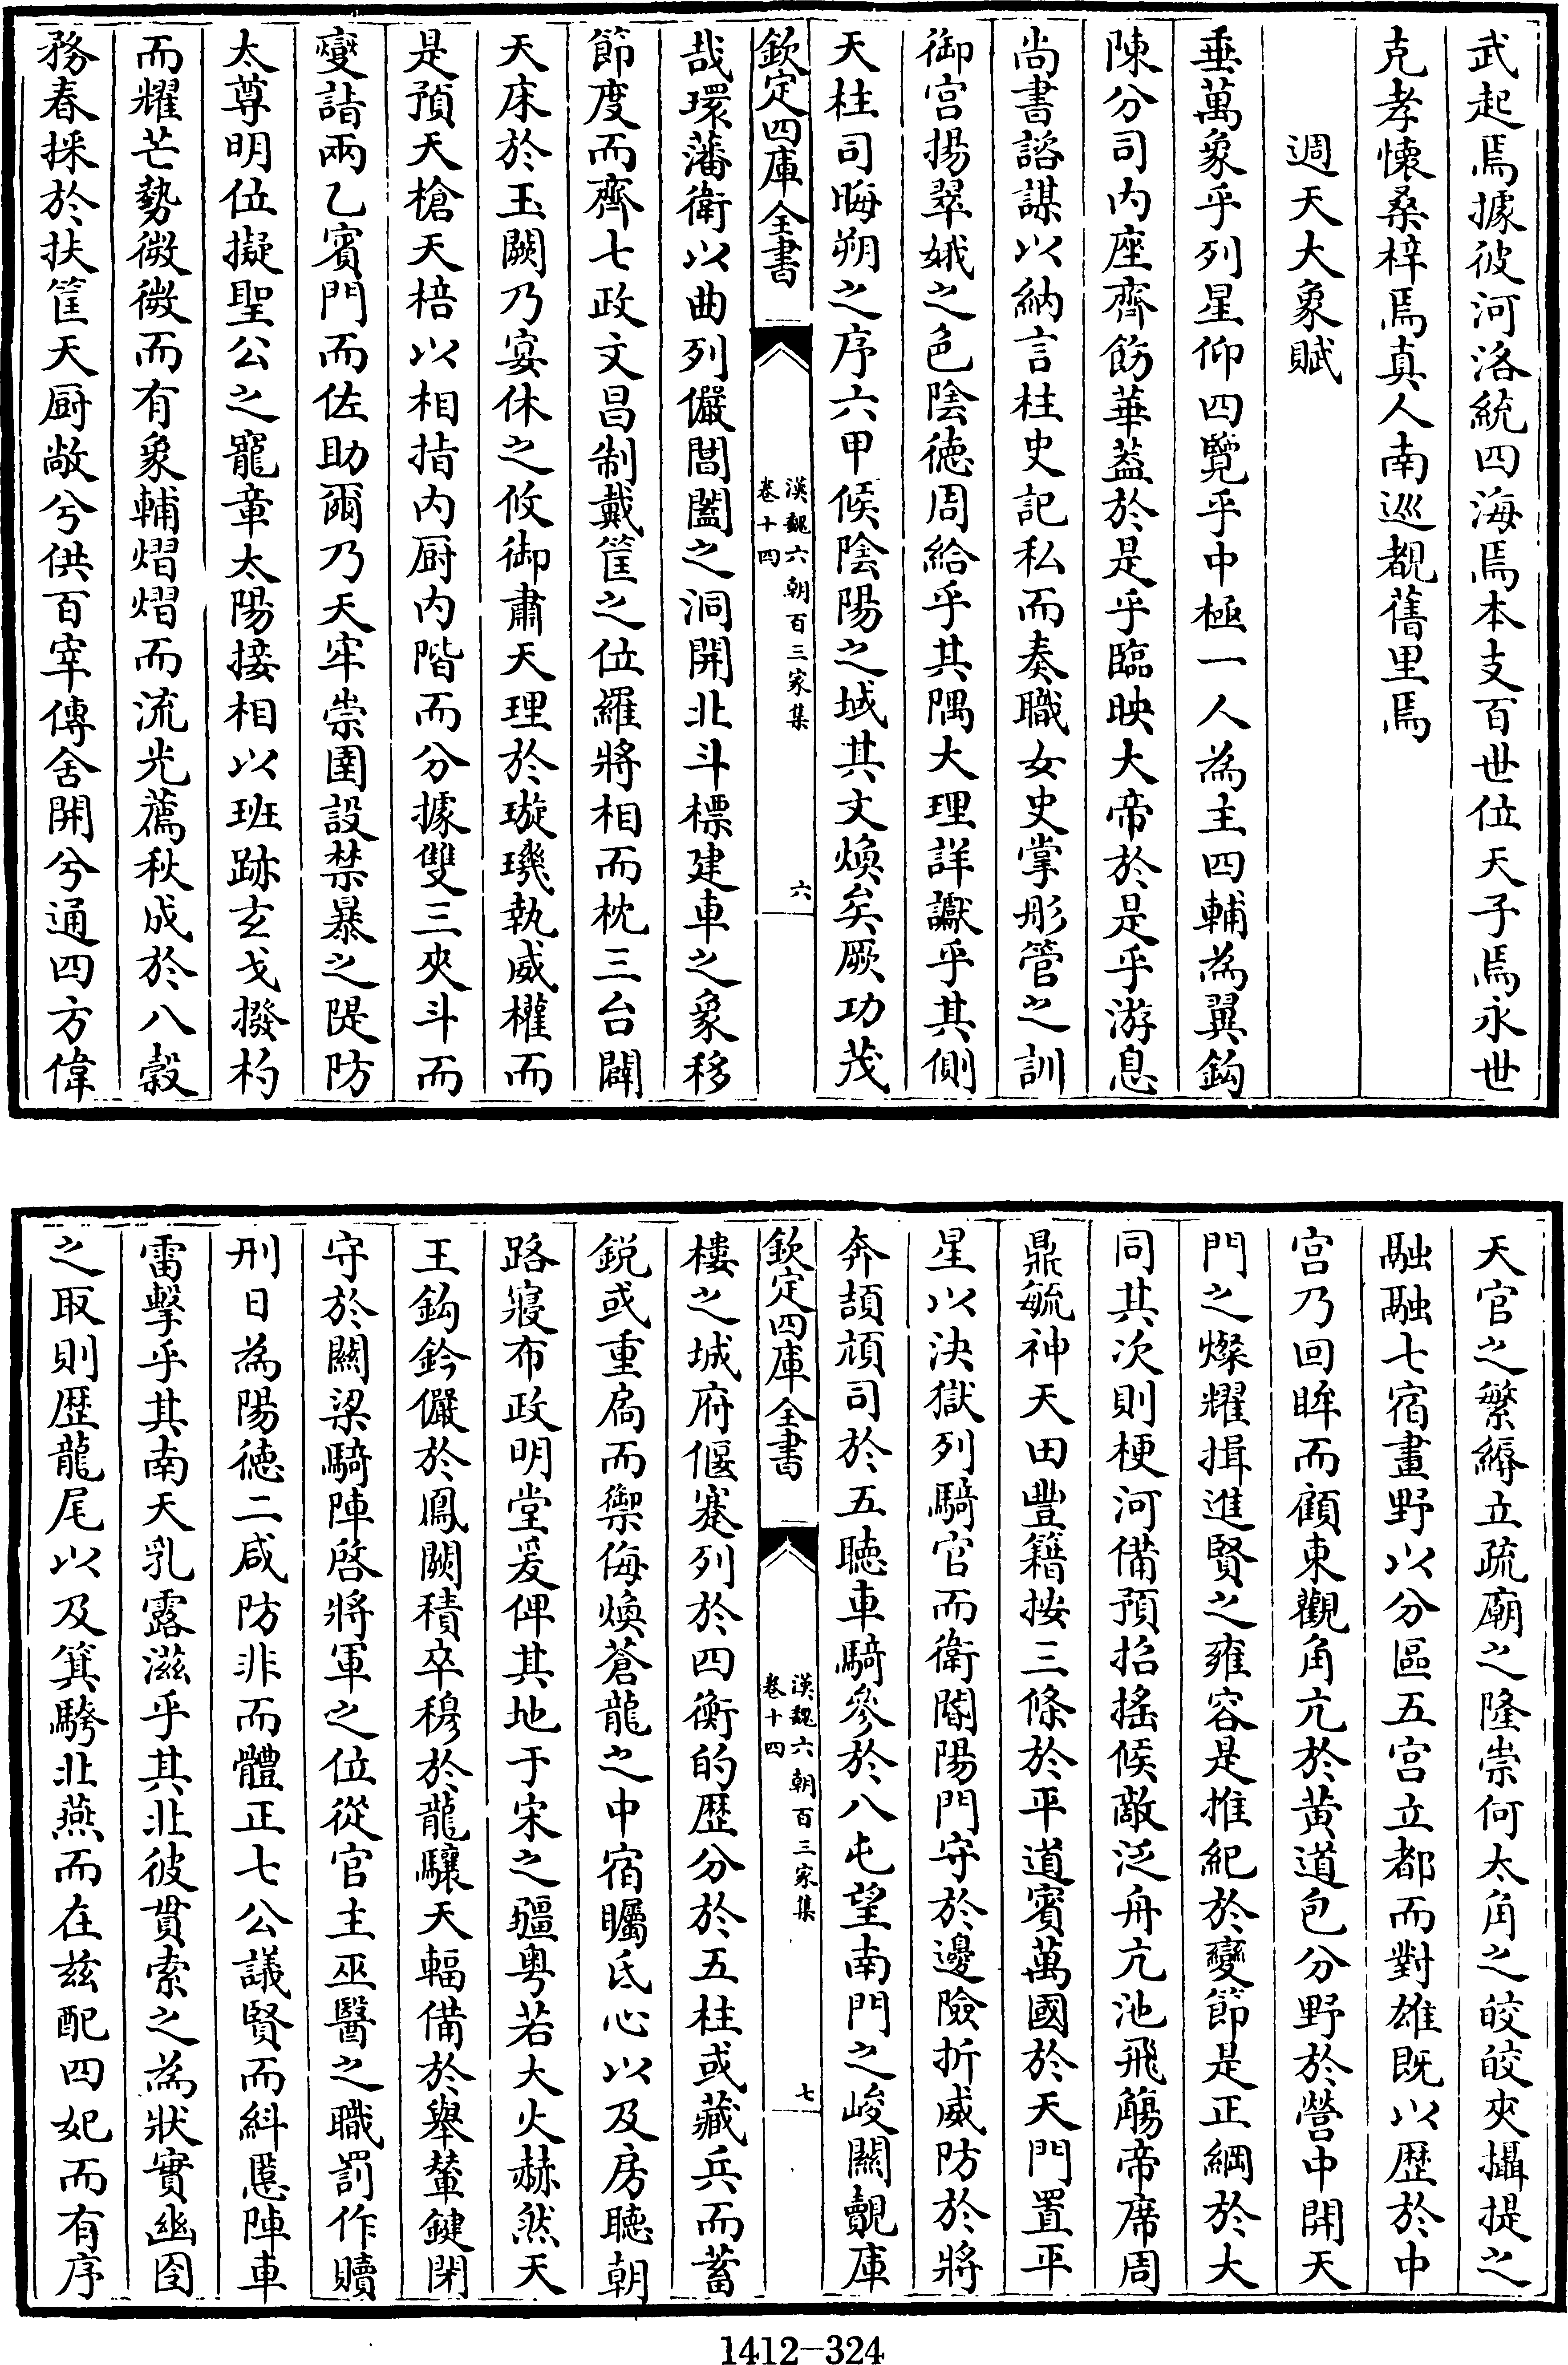 武起焉據彼河洛統四海焉本支百世位天子焉永世
克孝懷桑梓焉真人南巡覩舊里焉
週天大象賦
垂萬象乎列星仰四覽乎中極一人為主四輔為翼鈎
陳分司内座齊飭華葢於是乎臨映大帝於是乎游息
尚書諮謀以納言柱史記私而奏職女史掌彤管之訓
御宫揚翠娥之色隂徳周給乎其隅大理詳讞乎其側
天柱司晦朔之序六甲候隂陽之域其文煥矣厥功茂
欽定四庫全書
漢魏六朝百三家集
卷十四
六
哉環藩衛以曲列儼閶闔之洞開北斗標建車之象移
節度而齊七政文昌制戴筐之位羅將相而枕三台闢
天床於玉闕乃宴休之攸御肅天理於璇璣執威權而
是預天槍天棓以相指内厨内階而分據雙三夾斗而
燮諧兩乙賓門而佐助爾乃天牢崇圉設禁暴之隄防
太尊明位擬聖公之寵章太陽接相以班跡玄戈撥杓
而耀芒勢微微而有象輔熠熠而流光薦秋成於八榖
務春採於扶筐天厨敞兮供百宰傳舍開兮通四方偉
天官之繁縟立疏廟之隆崇何太角之皎皎夾攝提之
融融七宿畫野以分區五宫立都而對雄既以歴於中
宫乃回眸而顧東觀角亢於黄道包分野於營中開天
門之燦耀揖進賢之雍容是推紀於變節是正綱於大
同其次則梗河備預招搖候敵泛舟亢池飛觴帝席周
鼎毓神天田豐籍按三條於平道賓萬國於天門置平
星以決獄列騎官而衛閽陽門守於邊險折威防於將
奔頡頏司於五聴車騎參於八屯望南門之峻闕覿庫
欽定四庫全書
漢魏六朝百三家集
卷十四
七
樓之城府偃蹇列於四衡的歴分於五柱或藏兵而蓄
鋭或重扃而禦侮煥蒼龍之中宿矚氐心以及房聴朝
路寢布政明堂爰俾其地于宋之疆粤若大火赫然天
王鈎鈐儼於鳳闕積卒穆於龍驤天輻備於舉輦鍵閉
守於闗梁騎陣啓將軍之位從官主巫醫之職罰作贖
刑日為陽徳二咸防非而體正七公議賢而糾慝陣車
雷擊乎其南天乳露滋乎其北彼貫索之為狀實幽囹
之取則歴龍尾以及箕騁北燕而在兹配四妃而有序
1412-324